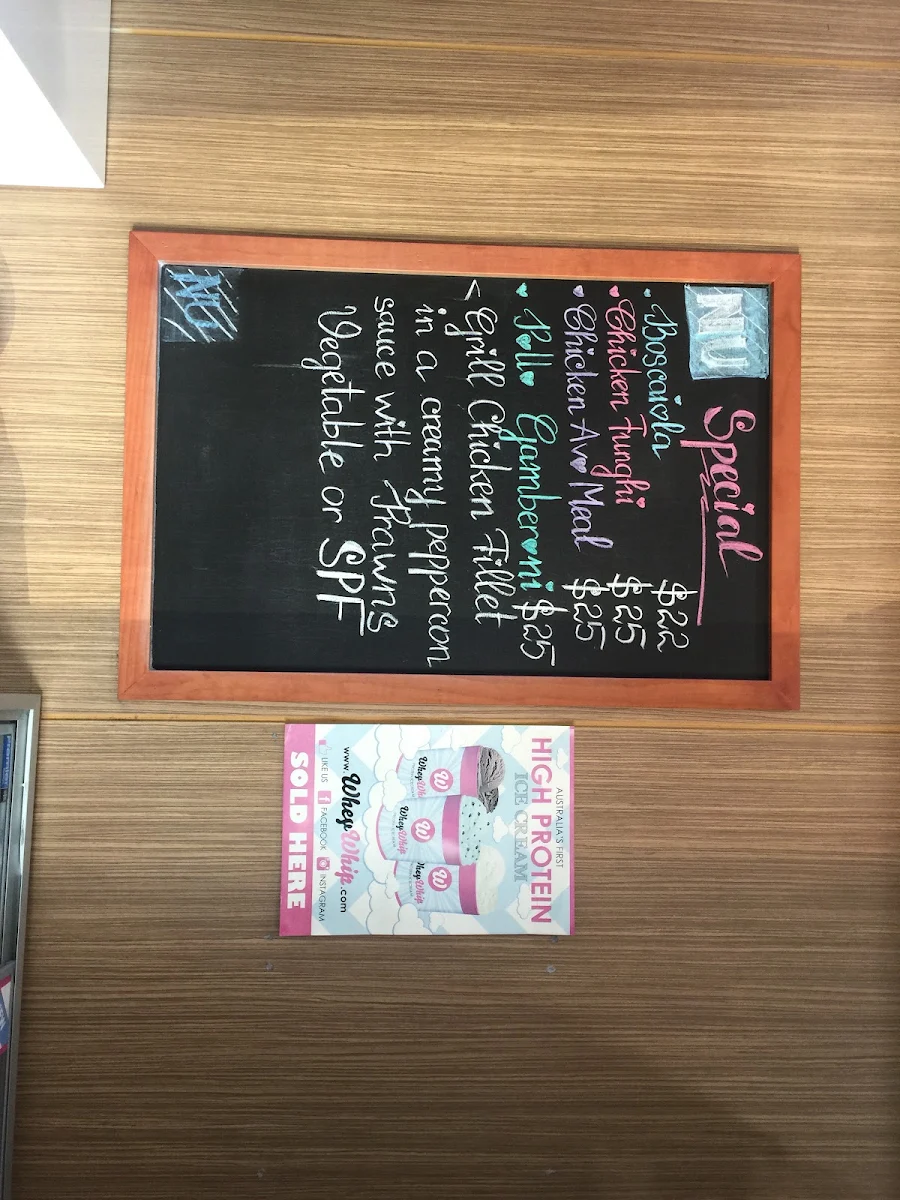 NU
Special
Boscaiola $22
Chicken Funghi $25
Chicken Avo Meal $25
Pollo Gamberoni $25
< Grill Chicken Fillet
in a creamy peppercorn
sauce with Prawns
Vegetable or SPF
NU
AUSTRALIA'S FIRST
HIGH PROTEIN
ICE CREAM
W
WheyWhip
W
WheyWhip
W
WheyWhip
www.WheyWhip.com
LIKE US FACEBOOK INSTAGRAM
SOLD HERE